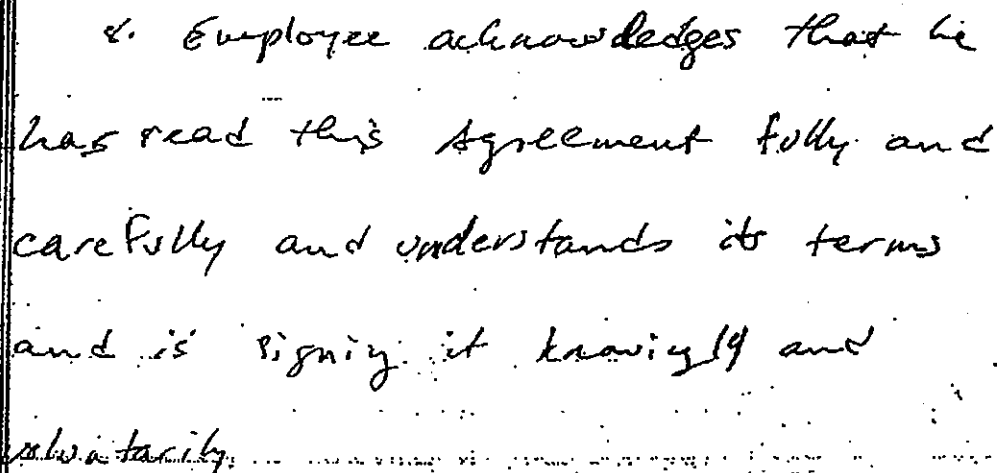 8. Employee acknowledges that he
has read this Agreement fully and
carefully and understands its terms
and is signing it knowingly and
voluntarily.